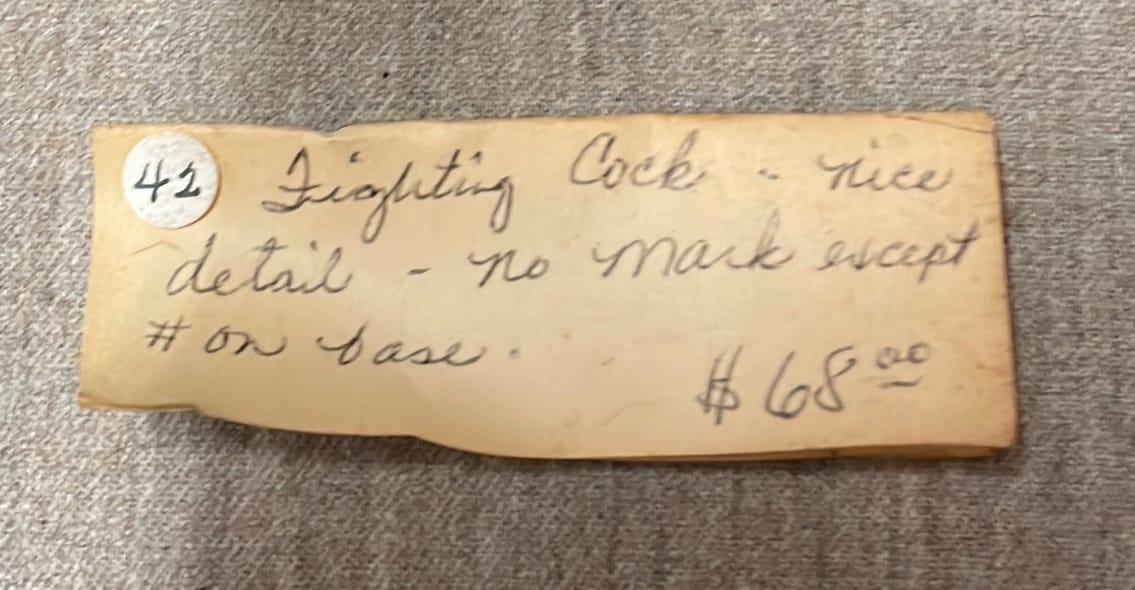 42 Fighting Cock - nice
detail - no mark except
# on base.
$68.00